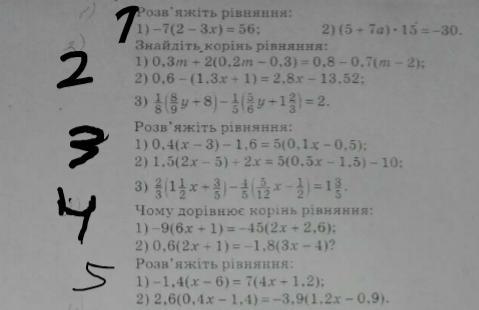 1 Розв'яжіть рівняння:
1) −7(2 − 3x) = 56; 2) (5 + 7a) · 15 = −30.
Знайдіть корінь рівняння:
2 1) 0,3m + 2(0,2m − 0,3) = 0,8 − 0,7(m − 2);
2) 0,6 − (1,3x + 1) = 2,8x − 13,52;
3) 1/8(8/9 y + 8) − 1/5(5/6 y + 1 2/3) = 2.
Розв'яжіть рівняння:
3 1) 0,4(x − 3) − 1,6 = 5(0,1x − 0,5);
2) 1,5(2x − 5) + 2x = 5(0,5x − 1,5) − 10;
3) 2/3(1 1/2 x + 3/5) − 4/5(5/12 x − 1/2) = 1 3/5.
4 Чому дорівнює корінь рівняння:
1) −9(6x + 1) = −45(2x + 2,6);
2) 0,6(2x + 1) = −1,8(3x − 4)?
5 Розв'яжіть рівняння:
1) −1,4(x − 6) = 7(4x + 1,2);
2) 2,6(0,4x − 1,4) = −3,9(1,2x − 0,9).